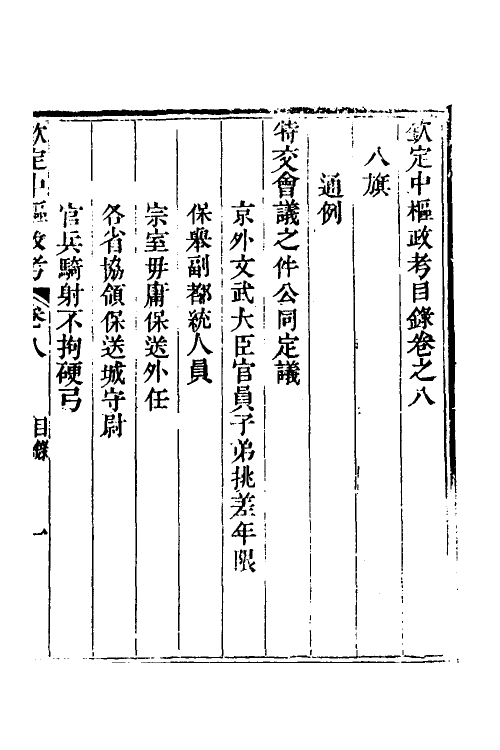 欽定中樞政考目錄卷之八
八旗
通例
特交會議之件公同定議
京外文武大臣官員子弟挑差年限
保舉副都統人員
宗室毋庸保送外任
各省協領保送城守尉
官兵騎射不拘硬弓
欽定中樞政考 卷八 目錄 一